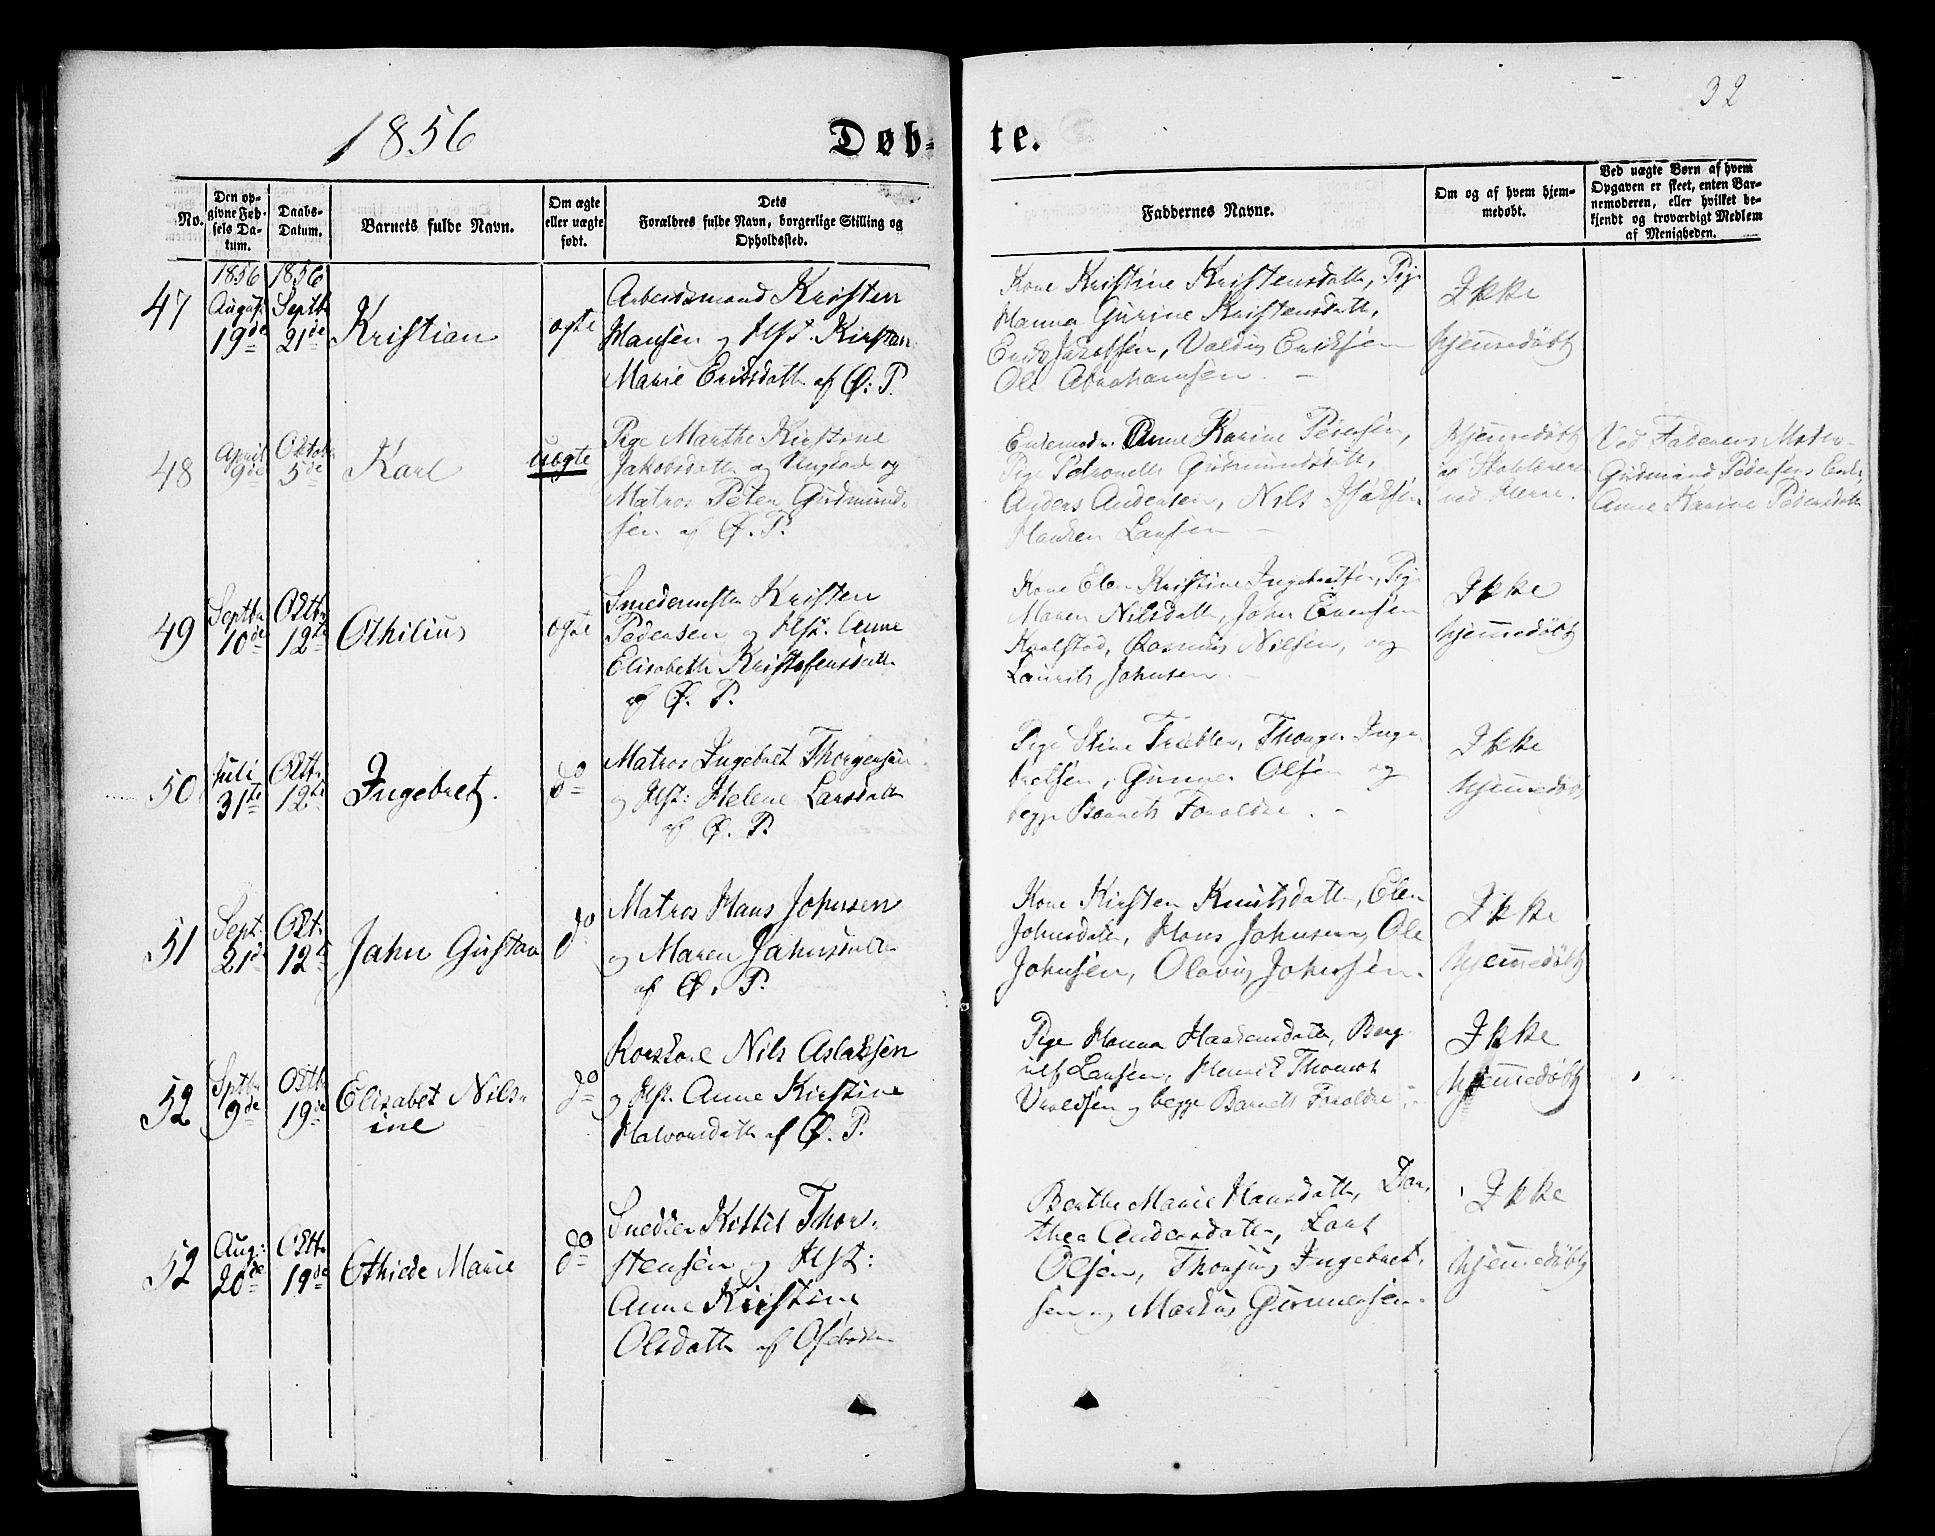 1856
Døb-
te.
32
No.
Den op-
givne Fød-
sels Da-
tum.
Daabs-
Datum.
Barnets fulde Navn.
Om ægte
eller uægte
født.
Dets
Forældres fulde Navn, borgerlige Stilling og
Opholdssted.
Faddernes Navne.
Om og af hvem hjem-
medøbt.
Ved uægte Børn af hvem
Opgaven er skeet, enten Bar-
nemoderen, eller hvilket be-
kjendt og troværdigt Medlem
af Menigheden.
47
1856
August
19de
1856
Septbr
21de
Kristian
ægte
Arbeidsmand Kristen
Hansen og Hst. Kirsten
Marie Eriksdatter af Ø. P.
Kone Kristine Kristensdatter, Pige
Hanna Gurine Kristensdatt,
Erik Jakobsen, Valdus Eriksen
Ole Abrahamsen.
Ikke
hjemmedøbt
48
April
9de
Oktobr
5de
Karl
uægte
Pige Marthe Kirstine
Jakobsdatter og Ungkarl og
Matros Peter Gudmund-
sen af Ø. P.
Enkemadm. Anne Karine Pedersen,
Pige Petronelle Gudmundsdatt,
Anders Andersen, Nils Isaksen
Hansen Larsen
hjemmedøbt
af
ved Herre.
Ved Faderens Moder
Gudmund Pedersens Enke,
Anne Karine Pedersdatter
49
Septbr
10de
Oktbr
12te
Othilius
ægte
Smedemester Kristen
Pedersen og Hst. Anne
Elisabeth Kristofersdatter
af Ø. P.
Kone Elen Kristine Ingebretsen, Pige
Maren Nilsdatter, John Evensen
Kvalstad, Rasmus Nilsen, og
Laurits Johnsen.
Ikke
hjemmedøbt
50
Juli
31te
Oktbr.
12te
Ingebret.
do
Matros Ingebret Thorgersen
og Hst: Helene Larsdatter
af Ø. P.
Pige Stine Træbler, Thorger Inge-
bretsen, Gunner Olsen og
begge Barnets Forældre.
Ikke
hjemmedøbt
51
Sept:
21de
Okt.
12te
Jahn Gustav
do
Matros Hans Johnsen
og Maren Jahnsdatter
af Ø. P.
Kone Kirsten Knutsdatter, Elen
Johnsdatter, Hans Johnsen, Ole
Johnsen, Olavus Johnsen.
Ikke
hjemmedøbt
52
Sptbr
9de
Oktbr
19de
Elisabet Nils-
ine
do
Nils Aslaksen
og Hst. Anne Kirstine
Halvorsdatter af Ø. P.
Pige Hanna Haakensdatter, Berg-
ulf Larsen, Henrik Thomas
og begge Barnets Forældre.
Ikke
hjemmedøbt
52
Aug:
20de
Oktbr.
19de
Othiede Marie
do
Snedker Kittil Thor-
stensen og Hst:
Anne Kirstine
Olsdatter af Osebakken
Berthe Marie Hansdatter, Dor-
thea Andersdatter, Lars
Olsen, Ingebret-
sen og Markus Gunnersen.
Ikke
hjemmedøbt